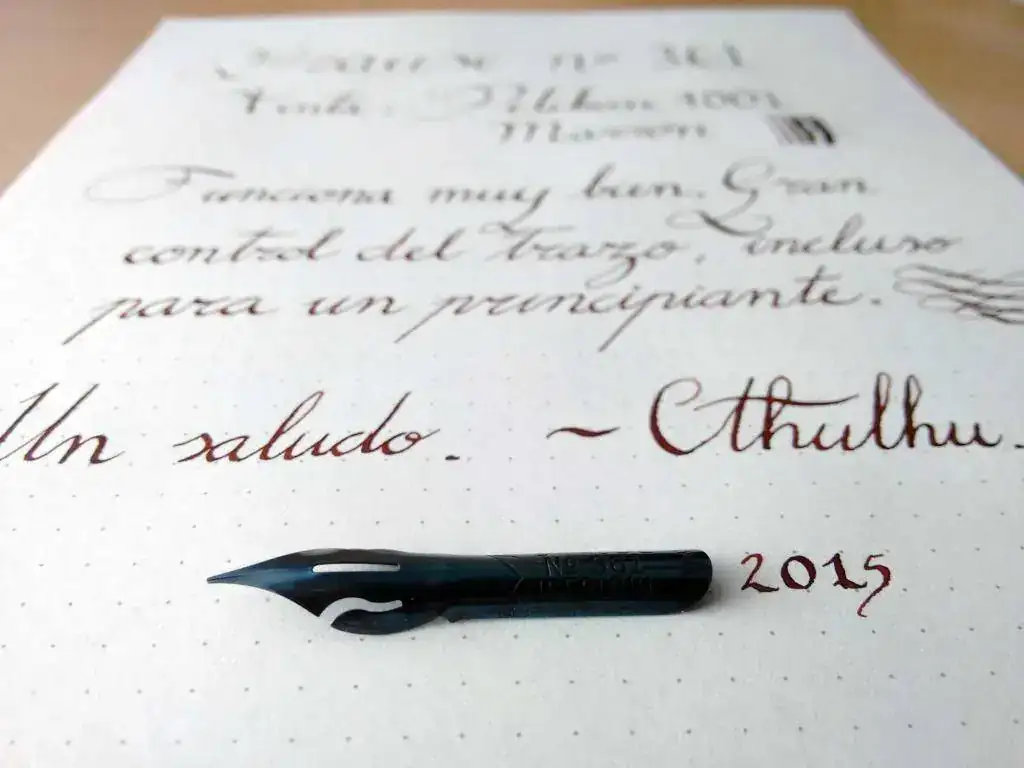 nº 361
Tinta: Pelikan 4001
Marron
Funciona muy bien. Gran
control del trazo, incluso
para un principiante.
Un saludo. ~ Cthulhu.
Nº 361
2015